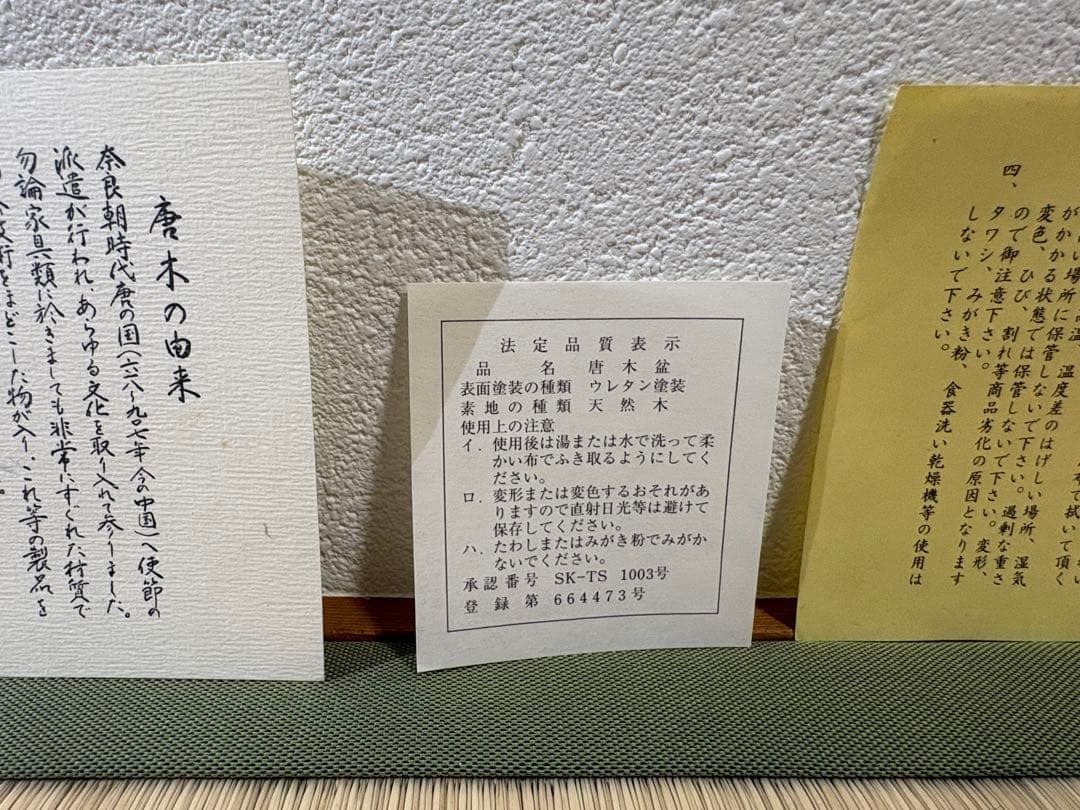 唐木の由来
奈良朝時代唐の国(六一八~九〇七年今の中国)へ使節の
派遣が行われ、あらゆる文化を取り入れて参りました。
勿論家具類に於きましても非常にすぐれた材質で
した物が入り、これ等の製品を
法定品質表示
品名 唐木盆
表面塗装の種類 ウレタン塗装
素地の種類 天然木
使用上の注意
イ. 使用後は湯または水で洗って柔
かい布でふき取るようにしてく
ださい。
ロ. 変形または変色するおそれがあ
りますので直射日光等は避けて
保存してください。
ハ. たわしまたはみがき粉でみがか
ないでください。
承認番号 SK-TS 1003号
登録第 664473号
拭いて頂く
温度差のはげしい場所、湿気
い場所に保管しないで下さい。過剰な重さ
がかかる状態では保管しないで下さい。変形、
変色、ひび、割れ等商品劣化の原因となります
ので御注意下さい。
四、タワシ、みがき粉、食器洗い乾燥機等の使用は
しないで下さい。